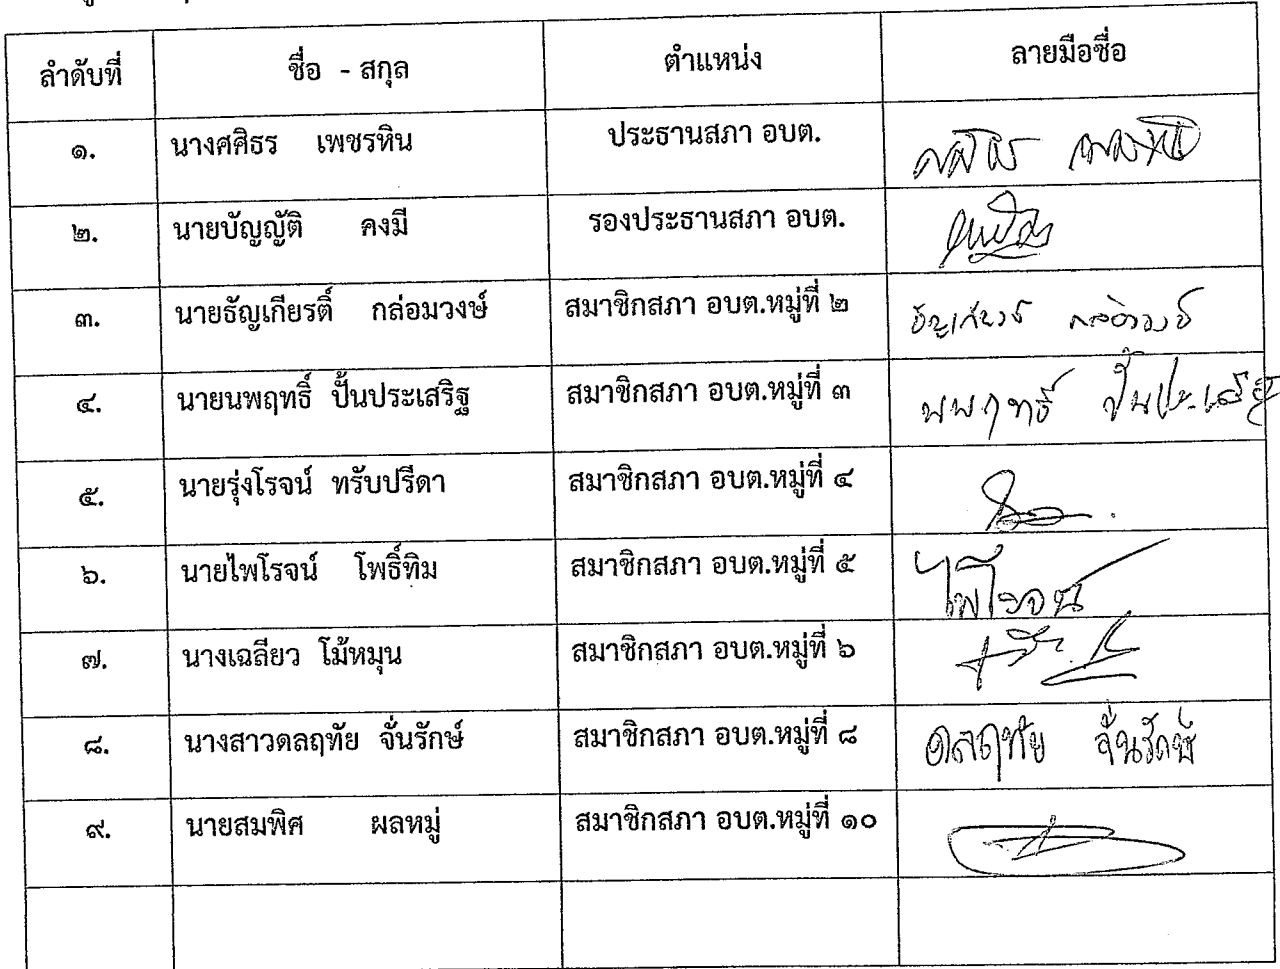 ลำดับที่ ชื่อ - สกุล ตำแหน่ง ลายมือชื่อ
๑. นางศศิธร เพชรหิน ประธานสภา อบต.
๒. นายบัญญัติ คงมี รองประธานสภา อบต.
๓. นายธัญเกียรติ์ กล่อมวงษ์ สมาชิกสภา อบต.หมู่ที่ ๒ ธัญเกียรติ์ กล่อมวงษ์
๔. นายนพฤทธิ์ ปั้นประเสริฐ สมาชิกสภา อบต.หมู่ที่ ๓ นพฤทธิ์ ปั้นประเสริฐ
๕. นายรุ่งโรจน์ ทรับปรีดา สมาชิกสภา อบต.หมู่ที่ ๔
๖. นายไพโรจน์ โพธิ์ทิม สมาชิกสภา อบต.หมู่ที่ ๕ ไพโรจน์
๗. นางเฉลียว โม้หมุน สมาชิกสภา อบต.หมู่ที่ ๖
๘. นางสาวดลฤทัย จั่นรักษ์ สมาชิกสภา อบต.หมู่ที่ ๘ ดลฤทัย จั่นรักษ์
๙. นายสมพิศ ผลหมู่ สมาชิกสภา อบต.หมู่ที่ ๑๐